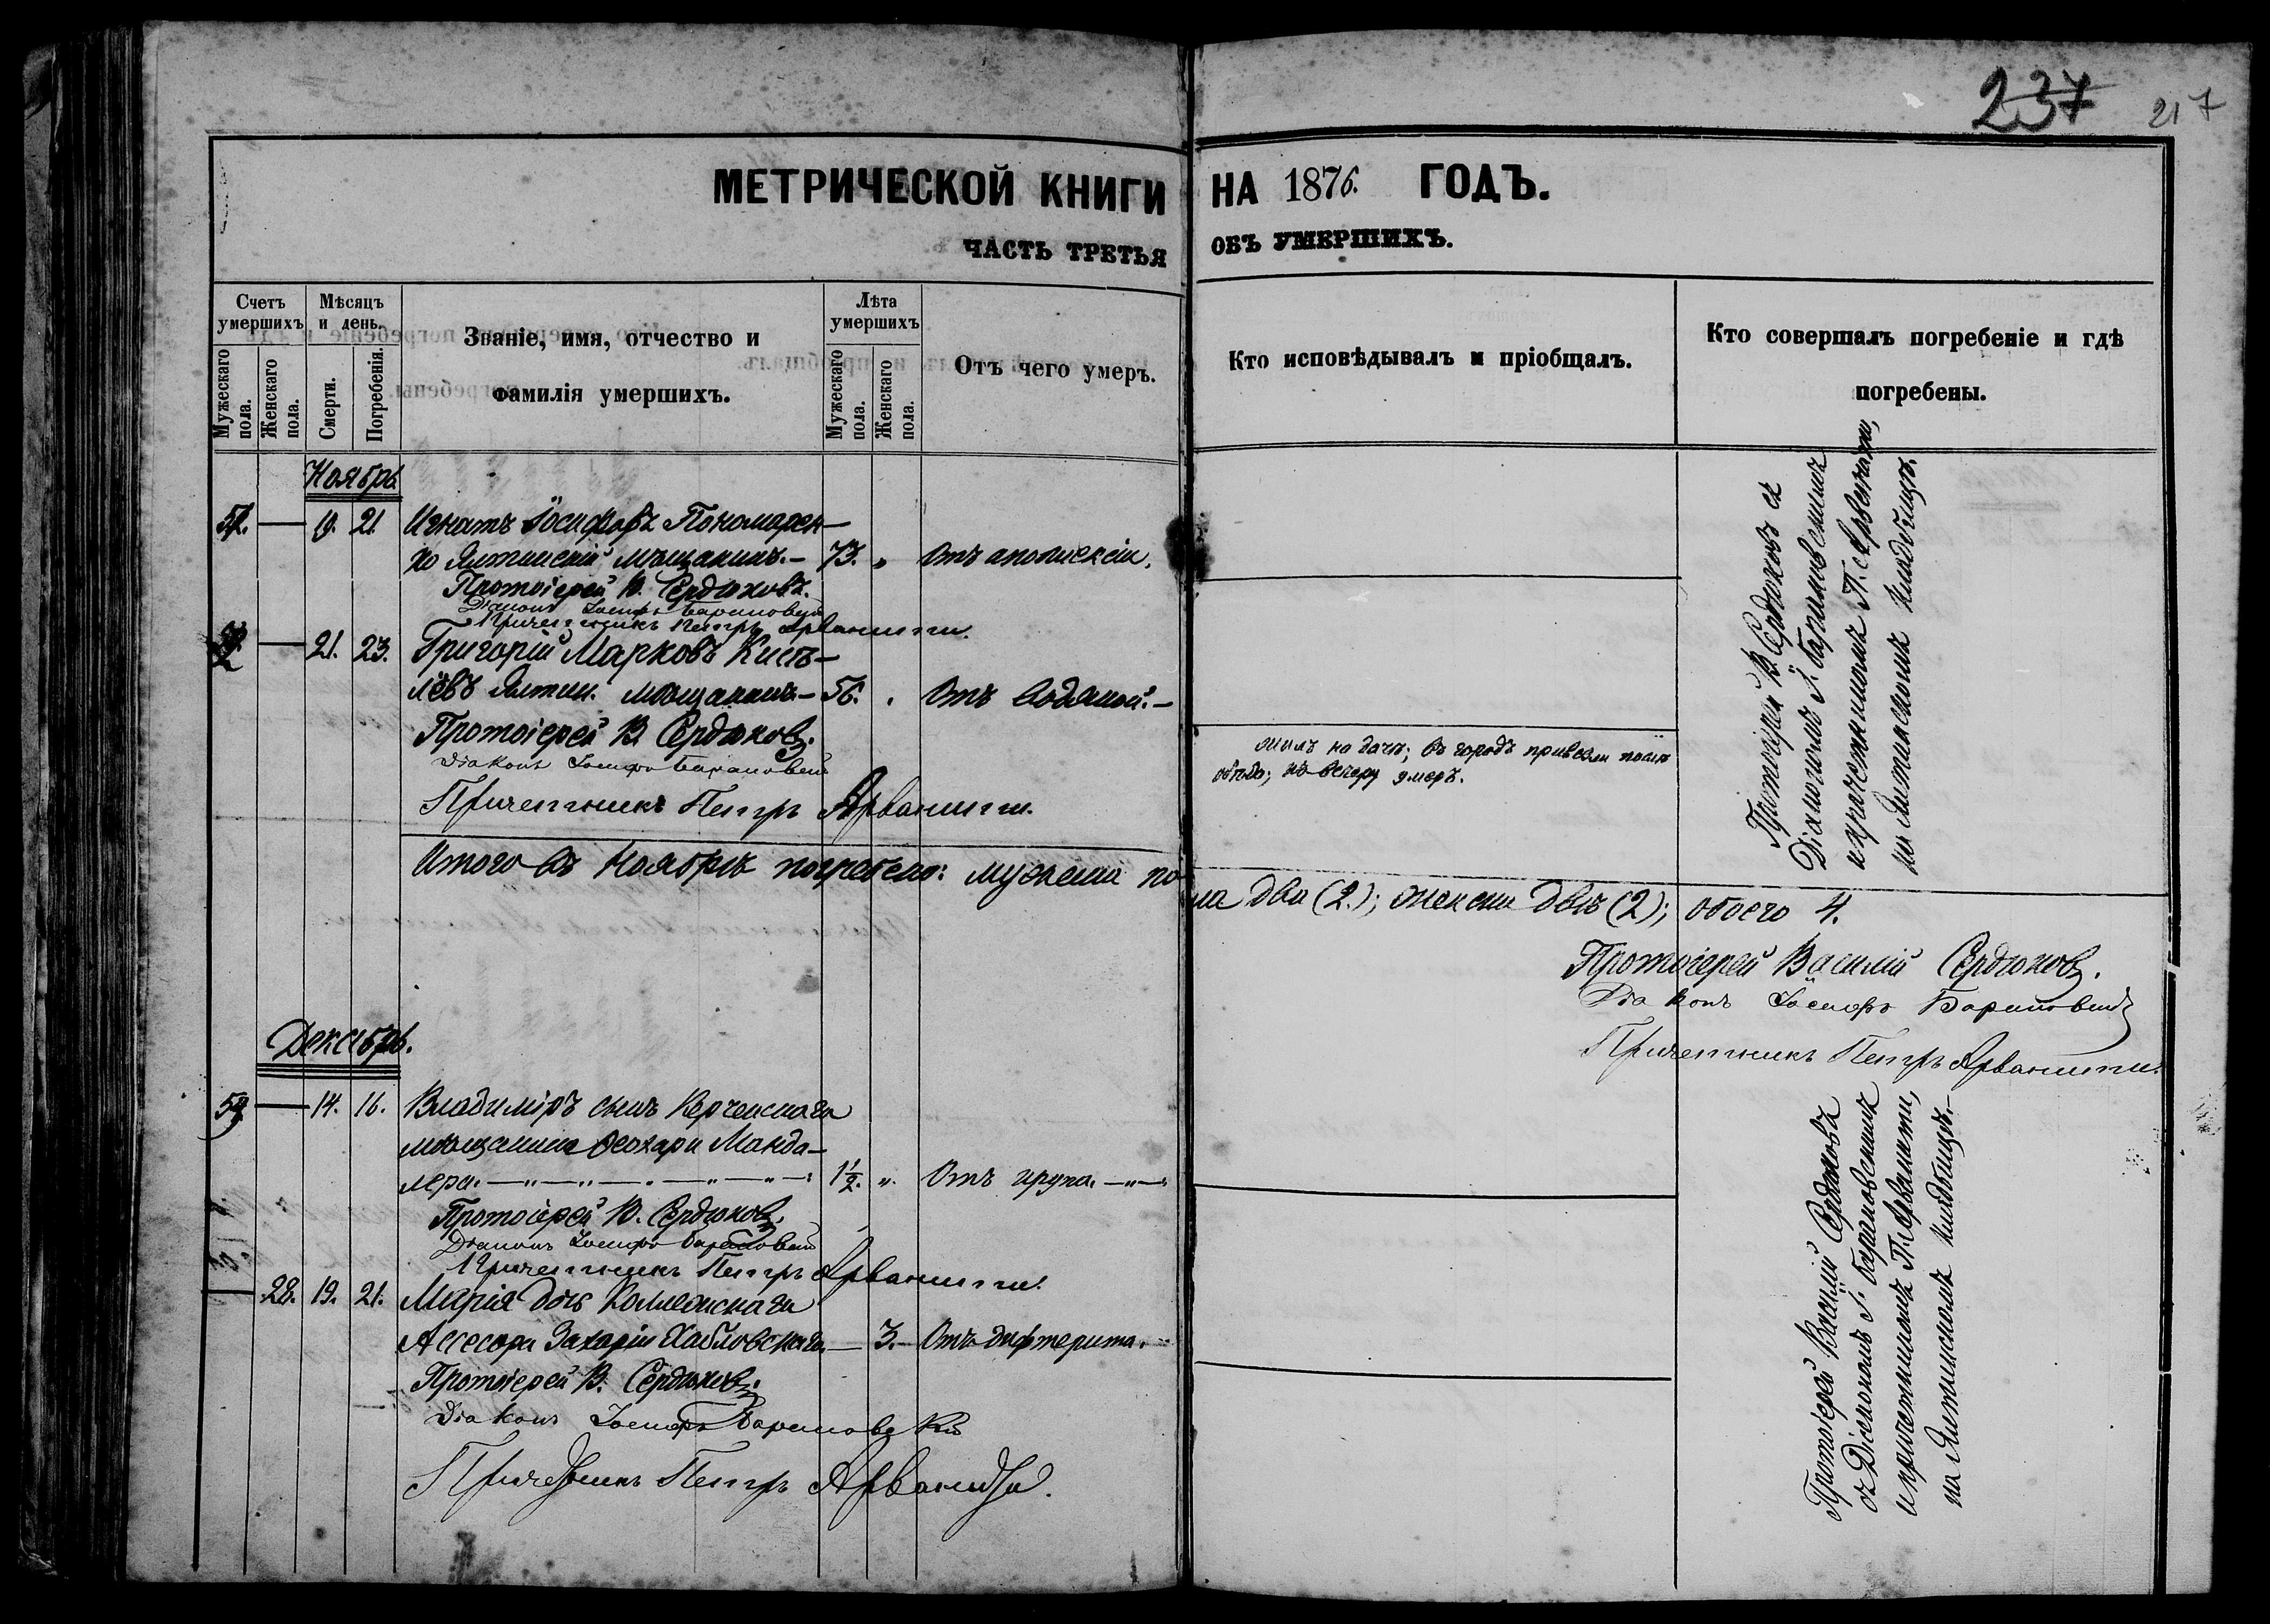 237 217
МЕТРИЧЕСКОЙ КНИГИ НА 1876. ГОДЪ.
ЧАСТЬ ТРЕТЬЯ ОБЪ УМЕРШИХЪ.
Счетъ умершихъ
Мужескаго пола.
Женскаго пола.
Мѣсяцъ и день.
Смерти.
Погребенія.
Званіе, имя, отчество и
фамилія умершихъ.
Лѣта умершихъ
Мужескаго пола.
Женскаго пола.
Отъ чего умеръ.
Кто исповѣдывалъ и пріобщалъ.
Кто совершалъ погребеніе и гдѣ
погребены.
Ноябрь
21. Игнатъ Іосифовъ Пономарен-
ко Ялтинскій мѣщанинъ.- 73. " Отъ апоплексіи.
Протоіерей В. Сердюковъ.
Діаконъ Іосифъ Барановскій
Причетникъ Петръ Арванити.
— 21. 23. Григорій Марковъ Кисе-
лёвъ Ялтин. мѣщанинъ.- 56. . Отъ водяной.-
Протоіерей В. Сердюковъ.
Діаконъ Іосифъ Барановскій
Причетникъ Петръ Арванити.
жилъ на дачѣ; въ городъ привезли послѣ
обѣда; къ вечеру умеръ.
Протоіерей В. Сердюковъ съ
Діакономъ І. Барановскимъ
и причетникомъ П. Арванити,
на Ялтинскомъ кладбищѣ.
Итого въ Ноябрѣ погребено: мужеска по-
ла два (2.); женска двѣ (2); обоего 4.
Протоіерей Василій Сердюковъ.
Діаконъ Іосифъ Барановскій
Причетникъ Петръ Арванити.
Декабрь.
— 14. 16. Владиміръ сынъ Керченскаго
мѣщанина Ѳеохари Манда-
лера. — " — " — " — 1½. ". Отъ крупа. — " —
Протоіерей В. Сердюковъ.
Діаконъ Іосифъ Барановскій
Причетникъ Петръ Арванити.
— 28. 19. 21. Марія дочь Коллежскаго
Ассесора Захарія Хабловскаго. — 3.- Отъ дифтерита.
Протоіерей В. Сердюковъ.
Діаконъ Іосифъ Барановскій
Причетникъ Петръ Арванити.
Протоіерей Василій Сердюковъ
съ Діакономъ І. Барановскимъ
и причетникомъ П. Арванити,
на Ялтинскомъ кладбищѣ.-